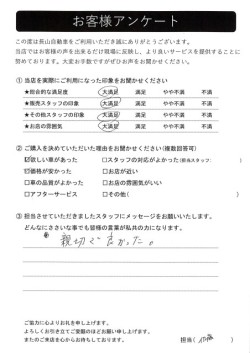 お客様アンケート
この度は長山自動車をご利用いただき誠にありがとうございます。
当店ではお客様の声を出来るだけ現場に反映し、より良いサービスを提供することに
努めております。大変お手数ですがぜひお声をお聞かせください。
① 当店を実際にご利用になった印象をお聞かせください
★総合的な満足度 大満足 満足 やや不満 不満
★販売スタッフの印象 大満足 満足 やや不満 不満
★その他スタッフの印象 大満足 満足 やや不満 不満
★お店の雰囲気 大満足 満足 やや不満 不満
② ご購入を決めていただいた理由をお聞かせください(複数回答可)
☑欲しい車があった □スタッフの対応がよかった(担当スタッフ: )
☑価格が安かった □お店が近い
□車の品質がよかった □お店の雰囲気がいい
□アフターサービス □その他( )
③ 担当させていただきましたスタッフにメッセージをお願いいたします。
どんなにささいな事でも皆様の言葉が私共の力になります。
親切で良かった。
ご協力に心よりお礼を申し上げます。
よろしくお引き立てご愛顧のほどお願い申し上げます。
またのご来店を心からお待ちしております。
担当( )